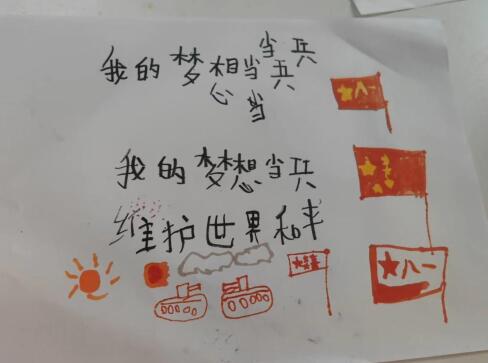 当兵
我的梦想当兵
当
八一
我的梦想当兵
维护世界和平
八一